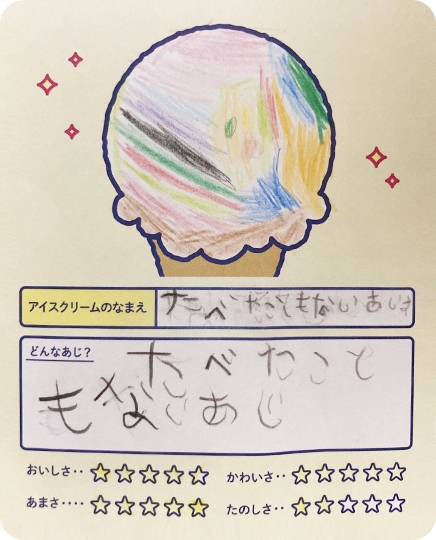 アイスクリームのなまえ
たべたこともないあじ
どんなあじ？
たべたこと
もないあじ
おいしさ‥ ☆☆☆☆☆ かわいさ‥ ☆☆☆☆☆
あまさ‥‥ ☆☆☆☆☆ たのしさ‥ ☆☆☆☆☆